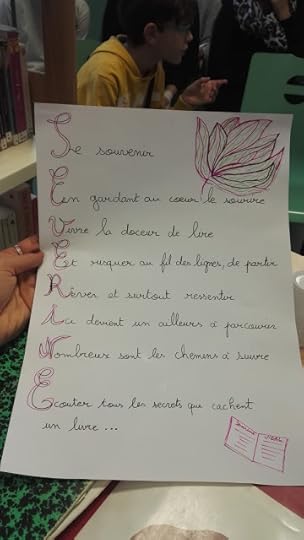 Se souvenir
En gardant au coeur le sourire
Vivre la douceur de lire
Et risquer au fil des lignes, de partir
Rêver et surtout ressentir
Ici devient un ailleurs à parcourir
Nombreux sont les chemins à suivre
Ecouter tous les secrets que cachent
un livre ...